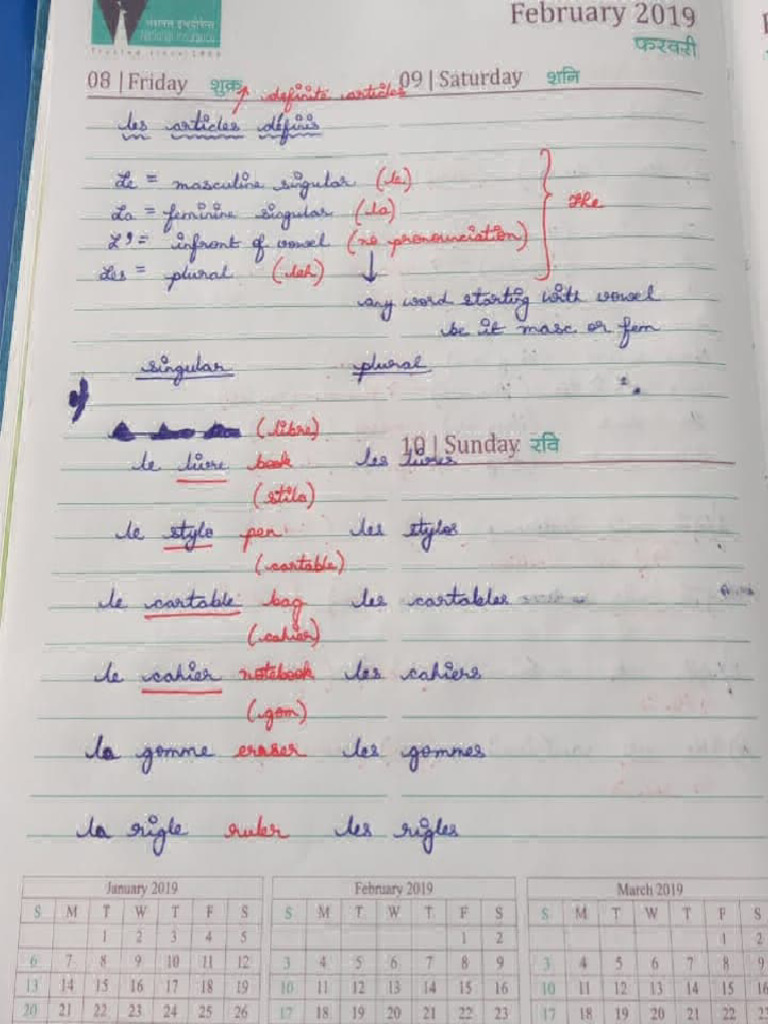 February 2019
फरवरी
नेशनल इन्श्योरेन्स
National Insurance
Trusted since 1906
08 | Friday शुक्र
09 | Saturday शनि
definite articles
les articles définis
Le = masculine singular (le)
La = feminine singular (la)
L' = infront of vowel (no pronounciation)
Les = plural (leh)
the
any word starting with vowel
be it masc or fem
singular plural
(libre)
10 | Sunday रवि
le livre book les livres
(stilo)
le stylo pen les stylos
(cartable)
le cartable bag les cartables
(cahier)
le cahier notebook les cahiers
(gom)
la gomme eraser les gommes
la rigle ruler les rigles
January 2019
S M T W T F S
1 2 3 4 5
6 7 8 9 10 11 12
13 14 15 16 17 18 19
20 21 22 23 24 25 26
February 2019
S M T W T F S
1 2
3 4 5 6 7 8 9
10 11 12 13 14 15 16
17 18 19 20 21 22 23
March 2019
S M T W T F S
1 2
3 4 5 6 7 8 9
10 11 12 13 14 15 16
17 18 19 20 21 22 23